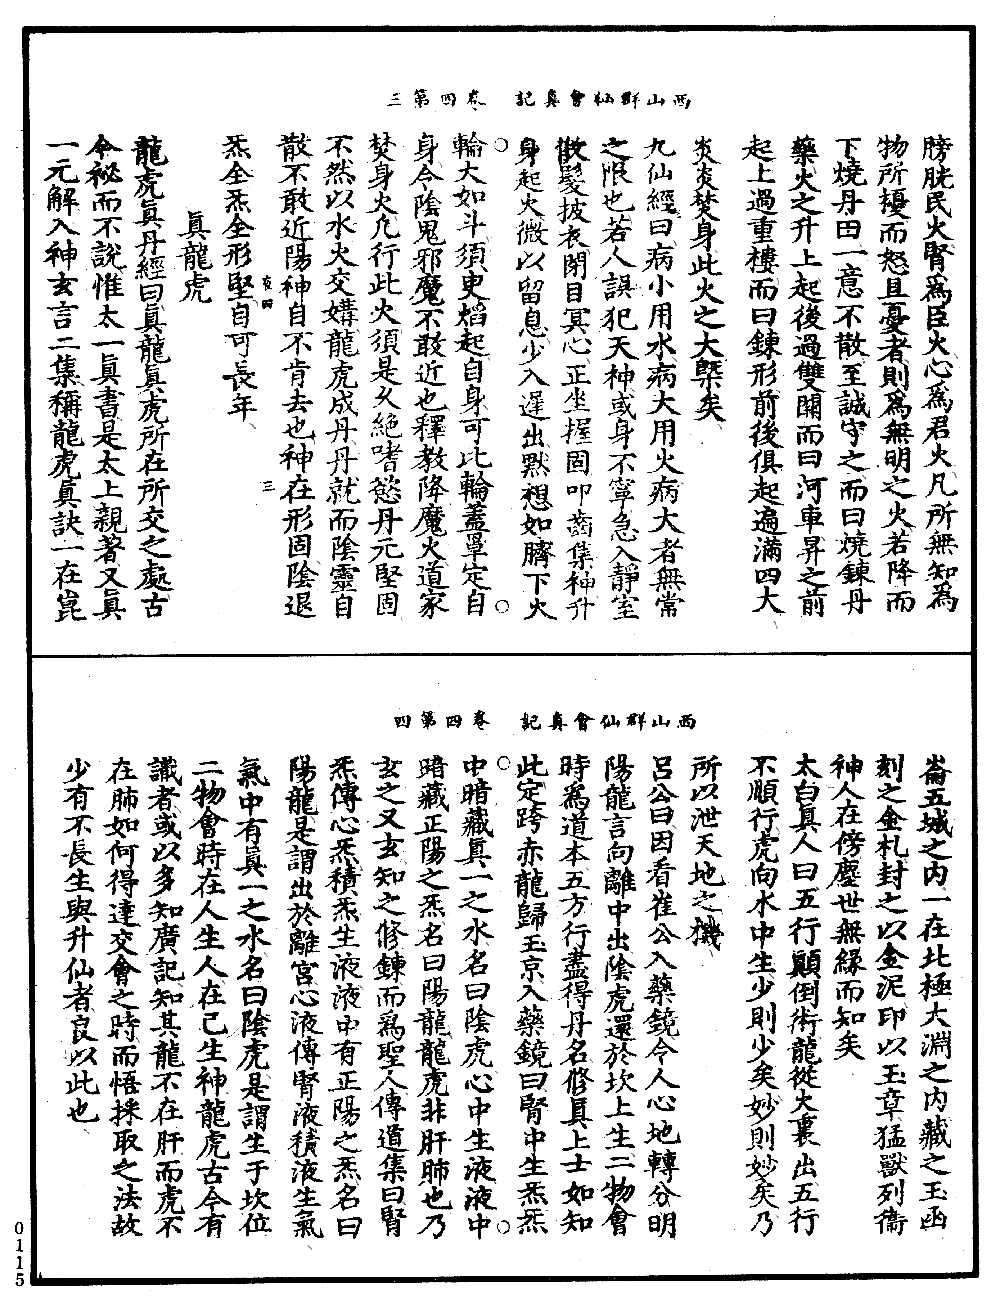 西山群仙會真記　卷四第三
膀胱民火腎爲臣火心爲君火凡所無知爲
物所擾而怒且憂者則爲無明之火若降而
下燒丹田一意不散至誠守之而曰燒鍊丹
藥火之升上起後過雙關而曰河車昇之前
起上過重樓而曰鍊形前後俱起遍滿四大
炎炎焚身此火之大槩矣
九仙經曰病小用水病大用火病大者無常
之限也若人誤犯天神或身不寧急入靜室
散髮披衣閉目冥心正坐握固叩齒集神升
身起火微以留息少入遲出默想如臍下火
輪大如斗須㬰焰起自身可比輪蓋罩定自
身令陰鬼邪魔不敢近也釋教降魔火道家
焚身火凡行此火須是久絶嗜慾丹元堅固
不然以水火交媾龍虎成丹丹就而陰靈自
散不敢近陽神自不肯去也神在形固陰退
炁全炁全形堅自可長年
夜四　三
真龍虎
龍虎真丹經曰真龍真虎所在所交之處古
今祕而不說惟太一真書是太上親著又真
一元解入神玄言二集稱龍虎真訣一在崑
西山群仙會真記　卷四第四
崙五城之内一在北極大淵之内藏之玉函
刻之金札封之以金泥印以玉章猛獸列衛
神人在傍塵世無緣而知矣
太白真人曰五行顚倒術龍從火裏出五行
不順行虎向水中生少則少矣妙則妙矣乃
所以泄天地之機
呂公曰因看崔公入藥鏡令人心地轉分明
陽龍言向離中出陰虎還於坎上生二物會
時爲道本五方行盡得丹名修真上士如知
此定跨赤龍歸玉京入藥鏡曰腎中生炁炁
中暗藏真一之水名曰陰虎心中生液液中
暗藏正陽之炁名曰陽龍龍虎非肝肺也乃
玄之又玄知之修鍊而爲聖人傳道集曰腎
炁傳心炁積炁生液液中有正陽之炁名曰
陽龍是謂出於離宮心液傳腎液積液生氣
氣中有真一之水名曰陰虎是謂生于坎位
二物會時在人生人在己生神龍虎古今有
識者或以多知廣記知其龍不在肝而虎不
在肺如何得達交會之時而悟採取之法故
少有不長生與升仙者良以此也
0115